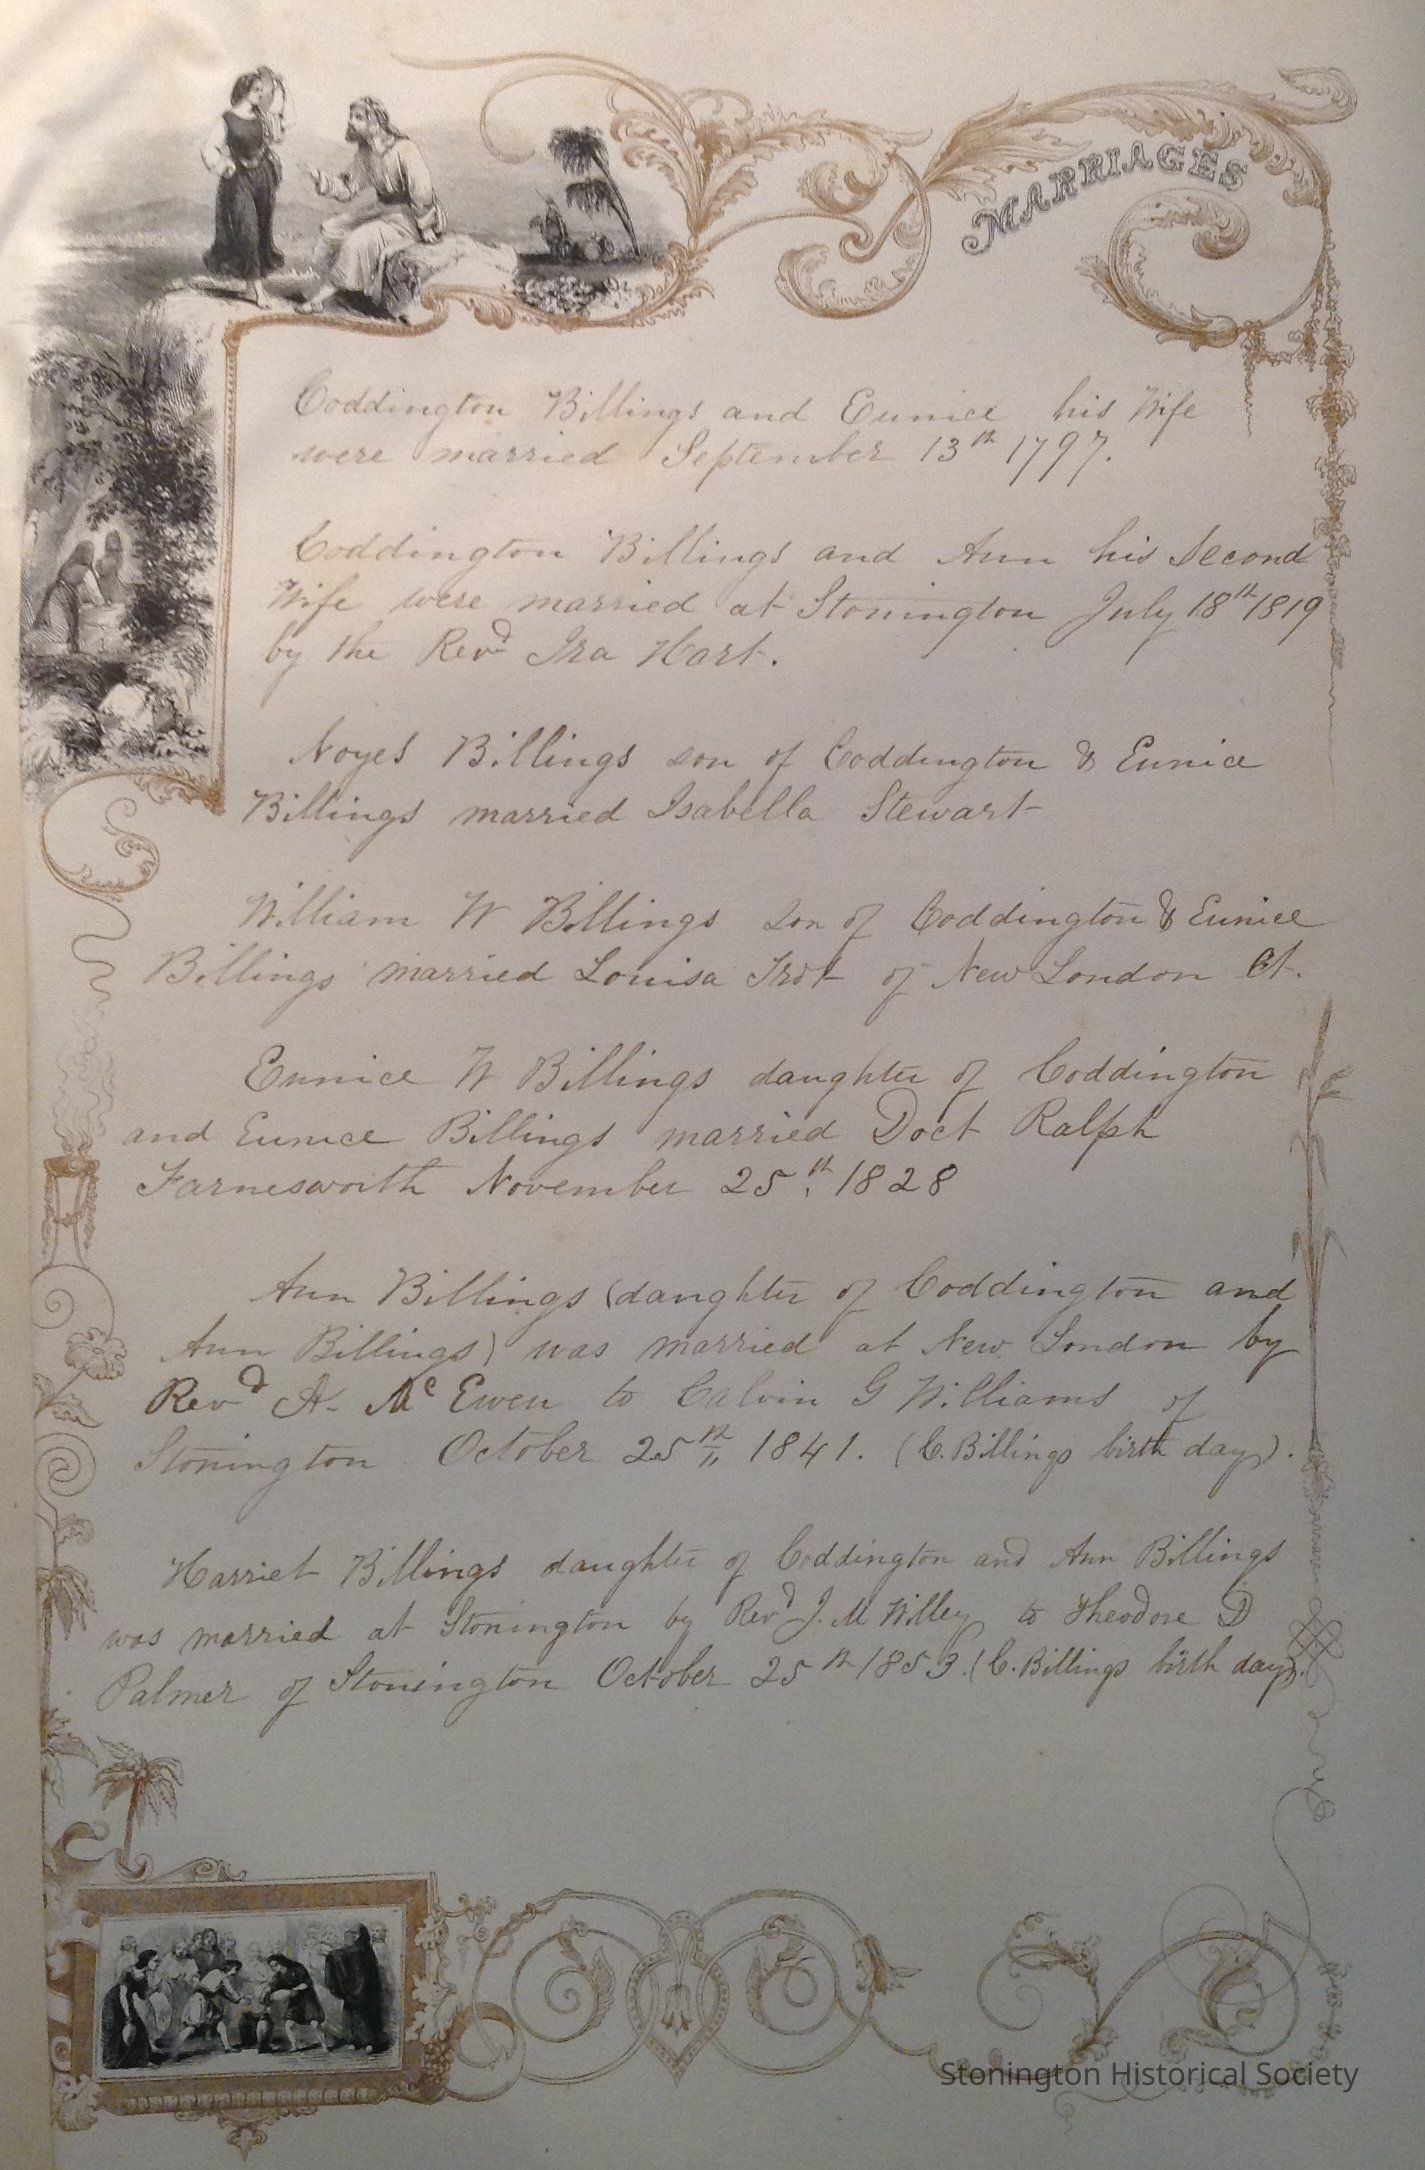 MARRIAGES
Coddington Billings and Eunice his Wife
were married September 13th 1797.
Coddington Billings and Ann his Second
Wife were married at Stonington July 18th 1819
by the Revd Ira Hart.
Noyes Billings son of Coddington & Eunice
Billings married Isabella Stewart
William W Billings son of Coddington & Eunice
Billings married Louisa Trot of New London Ct.
Eunice W Billings daughter of Coddington
and Eunice Billings married Doct Ralph
Farnesworth November 25th 1828
Ann Billings (daughter of Coddington and
Ann Billings) was married at New London by
Revd A. Mc Ewen to Calvin G Williams of
Stonington October 25th 1841. (C. Billings birth day).
Harriet Billings daughter of Coddington and Ann Billings
was married at Stonington by Revd J. M Willey to Theodore D
Palmer of Stonington October 25th 1853. (C. Billings birth day).
Stonington Historical Society